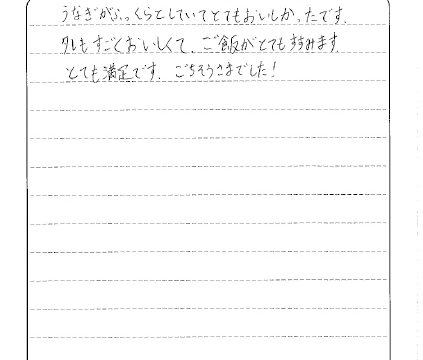 うなぎがふっくらとしていてとてもおいしかったです。
タレもすごくおいしくて、ご飯がとてもすすみます。
とても満足です。ごちそうさまでした!